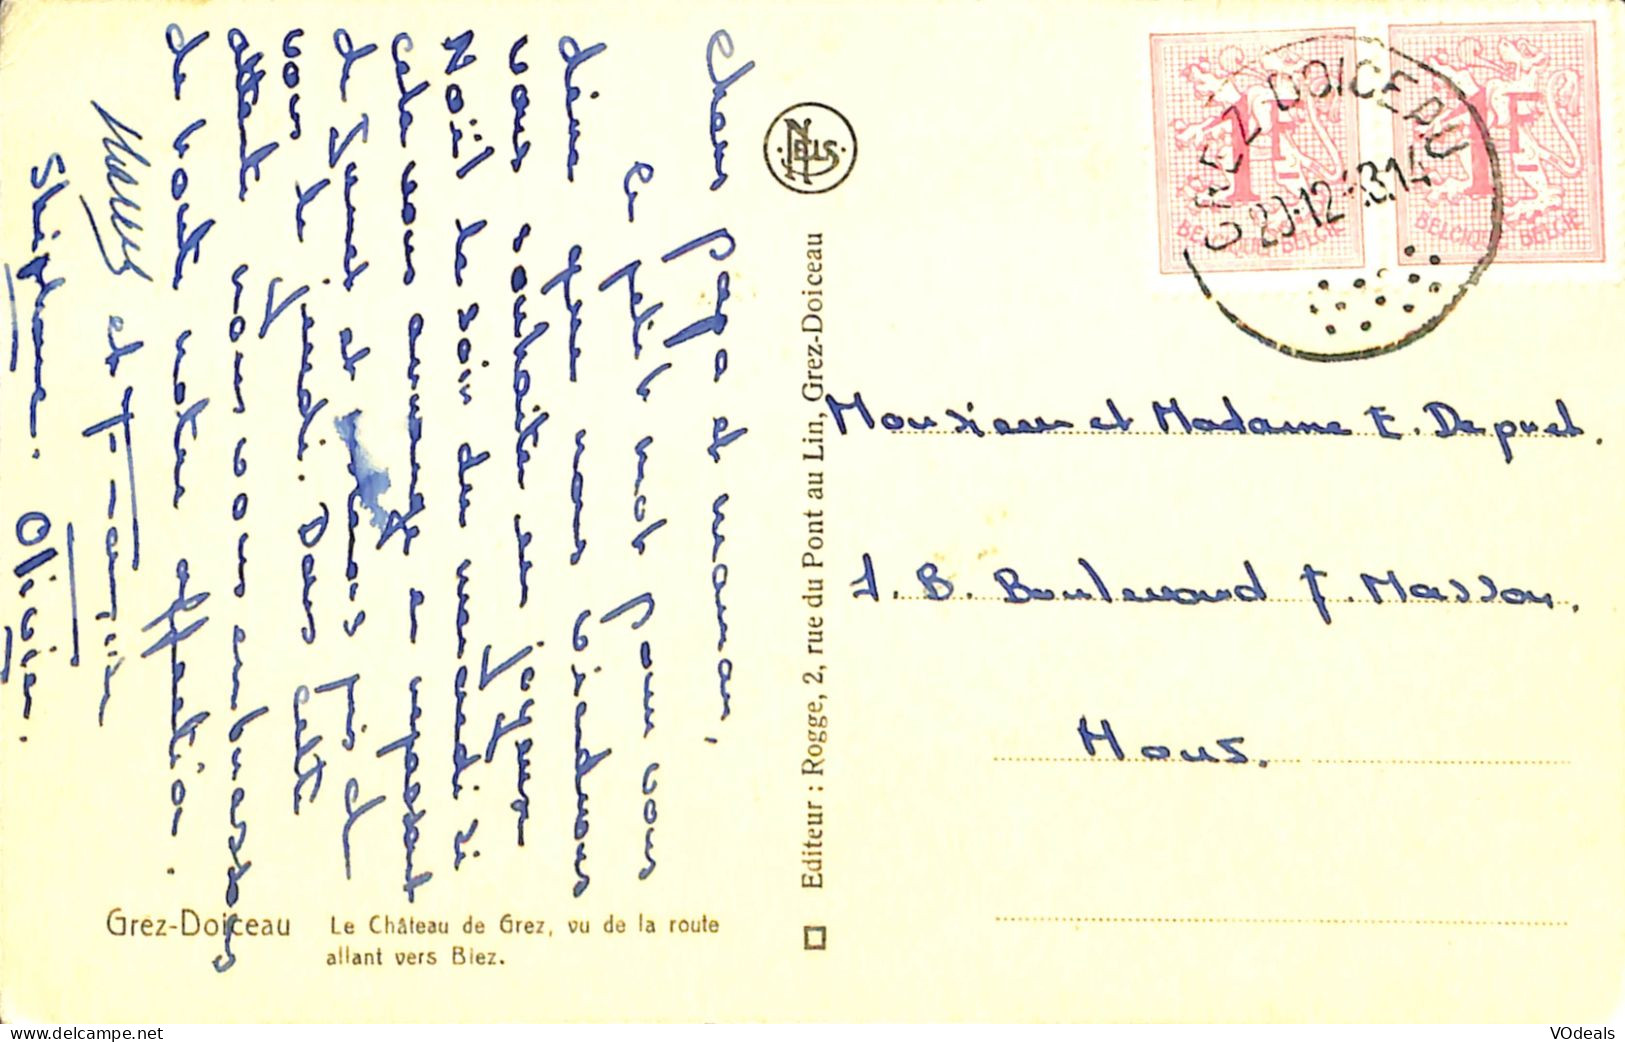 Chers papa et maman,
Ce petit mot pour vous
dire que nous viendrons
vous souhaiter un joyeux
Noël le soir du mercredi si
cela vous arrange en repassant
de Tunet et près de
vous le jeudi. Dans cette
attente nous vous embrassons
de toute notre affection.
et Françoise
Stéphane. Olivier.
Grez-Doiceau Le Château de Grez, vu de la route
allant vers Biez.
NELS
Editeur : Rogge, 2, rue du Pont au Lin, Grez-Doiceau
1F 1F
BELGIQUE BELGIE BELGIQUE BELGIE
GREZ DOICEAU
Monsieur et Madame E. Depret.
1. B. Boulevard F. Masson.
Mons.
VOdeals
www.delcampe.net